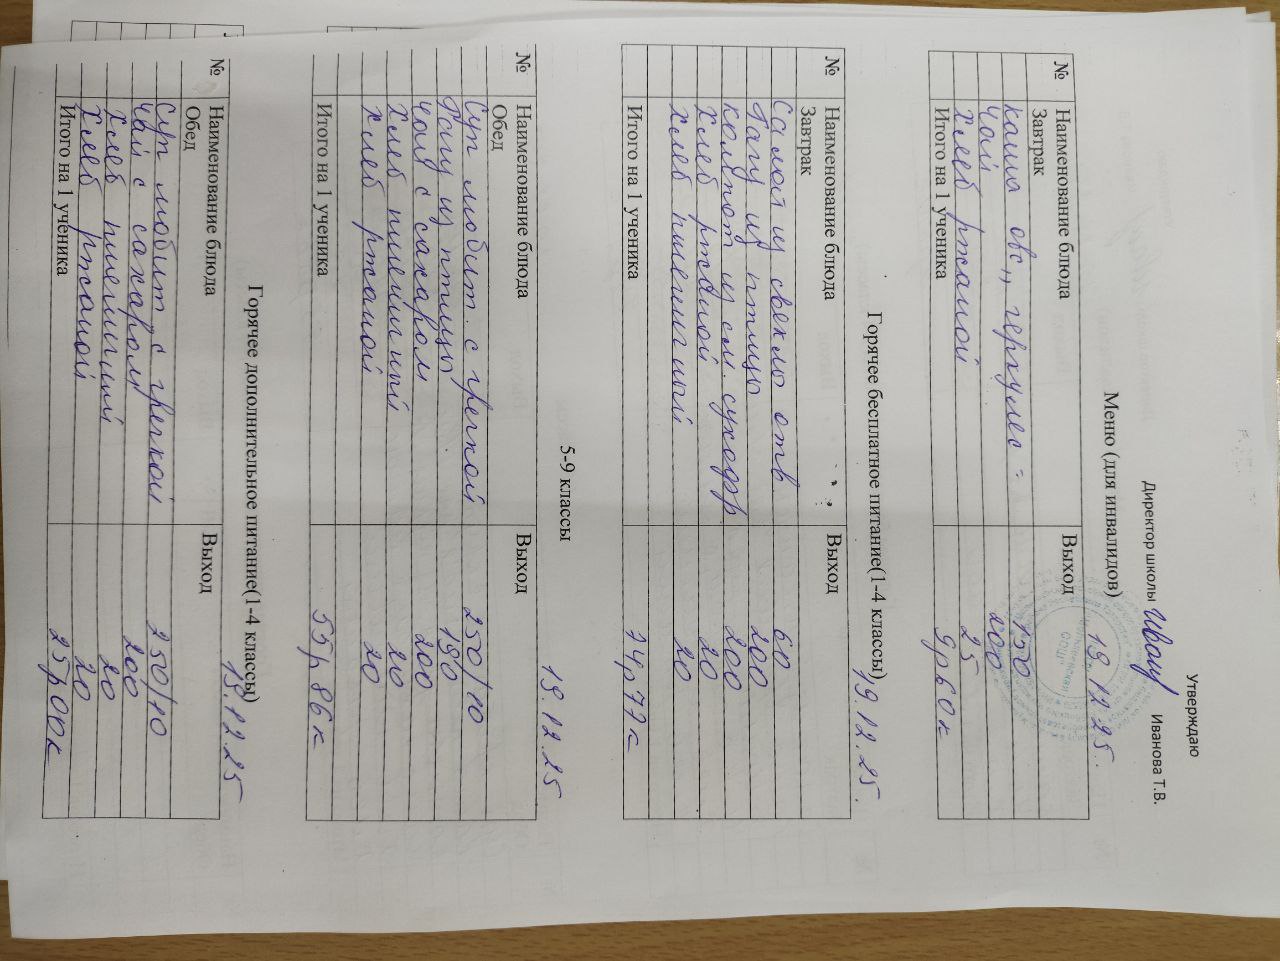 Утверждаю
Директор школы Иванова Т.В.
19.12.25.
Меню (для инвалидов)
№ Наименование блюда Выход
Завтрак
каша овс,, геркулес = 150
чай 200
хлеб ржаной 25
Итого на 1 ученика 9р60к
19.12.25.
Горячее бесплатное питание(1-4 классы)
№ Наименование блюда Выход
Завтрак
Салат из свеклы отв 60
Рагу из птицы 200
компот из см. сухофр 200
Хлеб ржаной 20
хлеб пшеничный 20
Итого на 1 ученика 74р77к
19.12.25
5-9 классы
№ Наименование блюда Выход
Обед
Суп любит. с гречкой 250/10
Рагу из птицы 190
чай с сахаром 200
хлеб пшеничный 20
хлеб ржаной 20
Итого на 1 ученика 55р86к
19.12.25
Горячее дополнительное питание(1-4 классы)
№ Наименование блюда Выход
Обед
Суп любит. с гречкой 250/10
чай с сахаром 200
хлеб пшеничный 20
хлеб ржаной 20
Итого на 1 ученика 25р00к